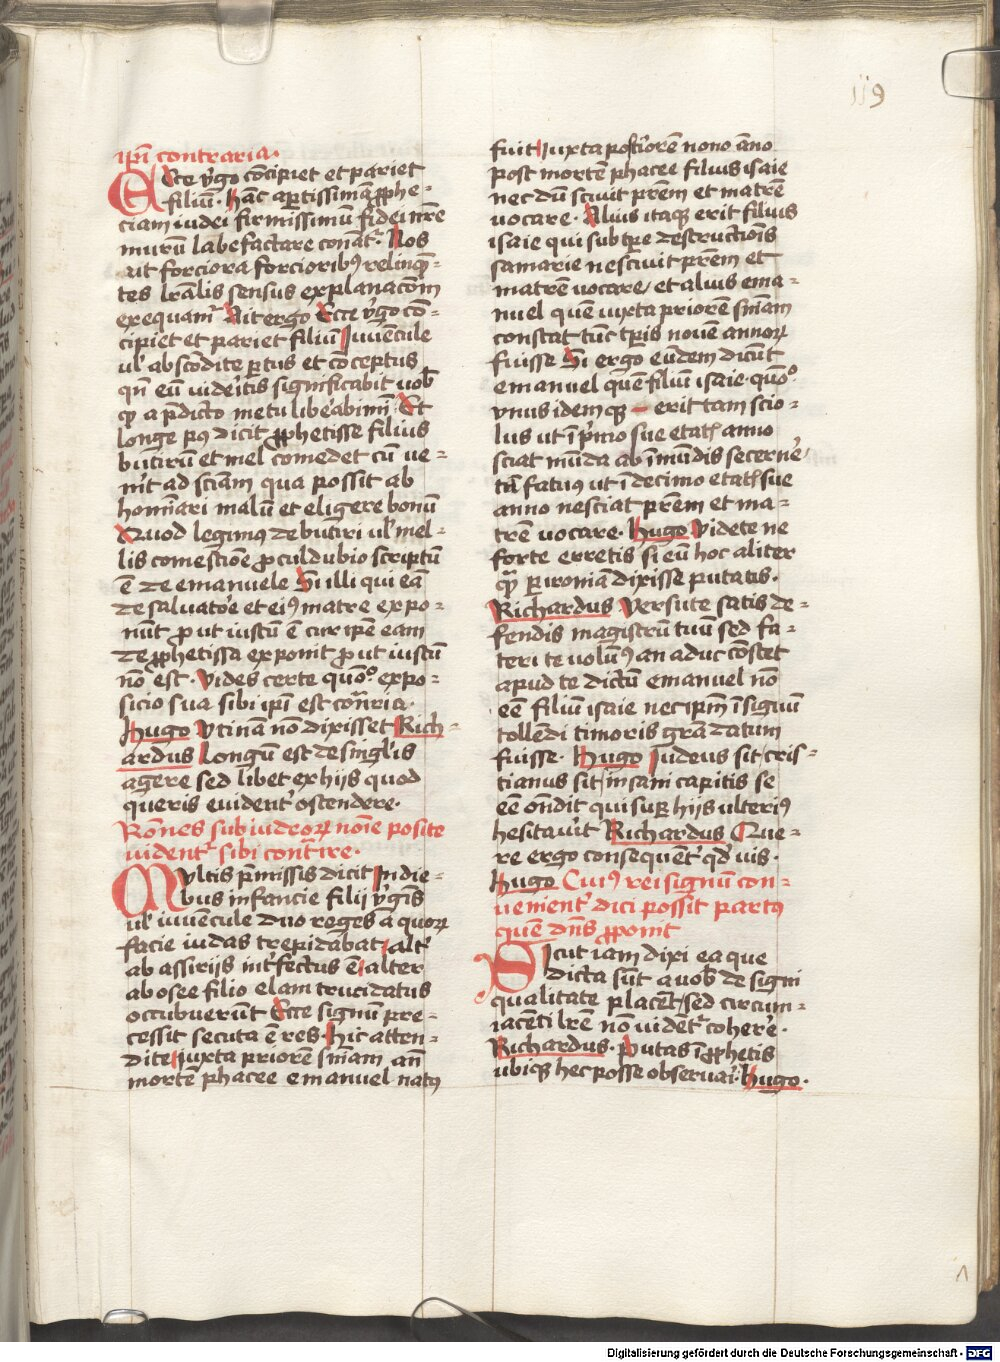 119
ip̄i contraria.
Ecce v̓go cōcipiet et pariet
filiū. hāc aꝑtissimā ꝓphe-
ciam iudei firmissimū fidei nr̄e
murū labefactare conant᷑. Nos
ait forciora forcioribꝰ relinqn̄-
tes lr̄alis sensus explanacōm
exequam᷑ Ait ergo Ecce v̓go cō-
cipiet et pariet filiū Iuuēcule
ul̓ abscōdite ꝑtus et cōceptus
qn̄ eū uidēitis significabit uob̄
qꝫ a p̄dicto metu libēabimī Et
longe pꝰ dicit ꝓphetisse filius
butirū et mel comedet cū ue-
nīt ad sciām qua possit ab
hominari malū et eligere bonū
Quod legimꝰ de butiri ul̓ mel-
lis comestiōe ꝓculdubio scriptū
ē de emanuele Si illi qui eā
de saluatōe et eiꝰ matre expo-
nūt ꝓut iustū ē cur ip̄e eam
de ꝓphetissa exponit ꝓut iustū
nō est. Vides certe quōꝰ expo-
sicio sua sibi ip̄i est cōnr̄ia.
Hugo Vtinā nō dixisset Rich-
ardus Longū est de singl̓is
agere sed libet ex hijs quod
queris euident᷑ ostendere.
Rōnes sub iudeoꝝ noīe posite
uident᷑ sibi cont᷑ire.
Multis p̄missis dicit In die-
bus infancie filij v̓gīs
ul̓ iuuēcule duo reges a quoꝝ
facie iudas trepidabat alt᷑
ab assirijs int̓fectus ē alter
ab osee filio elam trucidatus
occubuerūt Ecce signū pre-
cessit secuta ē res. Hic atten-
dite iuxta priorē sn̄iam an̄
mortē phacee emanuel natꝰ
fuit Iuxta post̓iorē nono āno
post mortē phacee filius isaie
nec dū sciuit pr̄em et matrē
uocare. Alius itaqꝫ erit filius
isaie qui sub tp̄e destructiōis
samarie nesciuit pr̄em et
matrē uocare, et alius ema-
nuel quē iuxta priorē sn̄iam
constat tūc tp̄is nouē annoꝝ
fuisse Si ergo eūdem dicūt
emanuel quē filiū isaie. quōꝰ
vnus idemqꝫ erit tam scio-
lus ut ī p̓mo sue etatꝭ anno
sciat mūda ab īmūdis secerne᷑
tā fatuꝰ ut ī decimo etatꝭ sue
anno nesciat pr̄em et ma-
trē uocare. Hugo Videte ne
forte erretis si eū hoc aliter
qꝫ̄ ꝑ ironiā dixisse putatis.
Richardus Versute satis de-
fendis magistrū tuū sed fa-
teri te volumꝰ an aduc cōstet
apud te dictū emanuel nō
eē filiū isaie nec ip̄m ī signū
tollendi timoris gr̄a datum
fuisse. Hugo Iudeus sit cris-
tianus sit insani capitis se
eē on̄dit qui suꝑ hijs ulteriꝰ
hesitau̓it Richardus Que-
re ergo consequent᷑ qd̓ vis.
Hugo Cuiꝰ rei signū con-
uenient᷑ dici possit partꝰ
quē dn̄s ꝓponit
Sicut iam dixi ea que
dicta sūt a uob̄ de signi
qualitate placēt, sed circum-
iacēti lr̄e nō uidet᷑ cohere.
Richardus. Putas ī ꝓphetis
ubiqꝫ hec posse obseruai̓. Hugo.
Digitalisierung gefördert durch die Deutsche Forschungsgemeinschaft - DFG